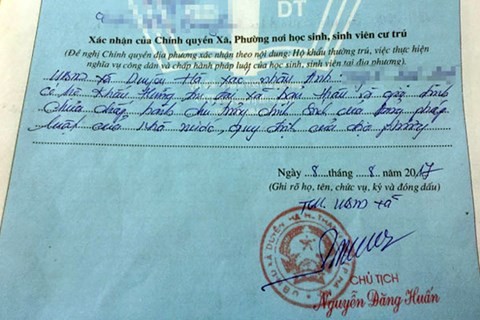 DT
Xác nhận của Chính quyền Xã, Phường nơi học sinh, sinh viên cư trú
(Đề nghị Chính quyền địa phương xác nhận theo nội dung: Hộ khẩu thường trú, việc thực hiện
nghĩa vụ công dân và chấp hành pháp luật của học sinh, sinh viên tại địa phương)
UBND xã Duyên Hà xác nhận Anh:
có hộ khẩu thường trú tại xã Duyên Hà và gia đình
chưa chấp hành chủ trương chính sách của Đảng pháp
luật của Nhà nước, quy định của địa phương
Ngày 8 tháng 8 năm 2017
(Ghi rõ họ, tên, chức vụ, ký và đóng dấu)
TM. UBND xã
CHỦ TỊCH
Nguyễn Đăng Huấn